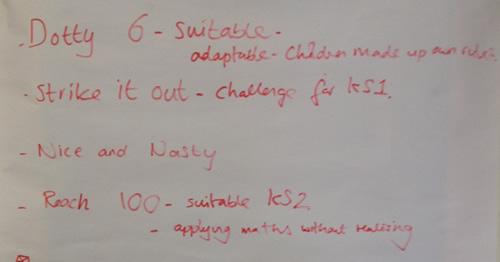 . Dotty 6 - Suitable -
adaptable - Children made up own rules.
. Strike it out - challenge for KS1.
- Nice and Nasty
- Reach 100 - suitable KS2
- applying maths without realising